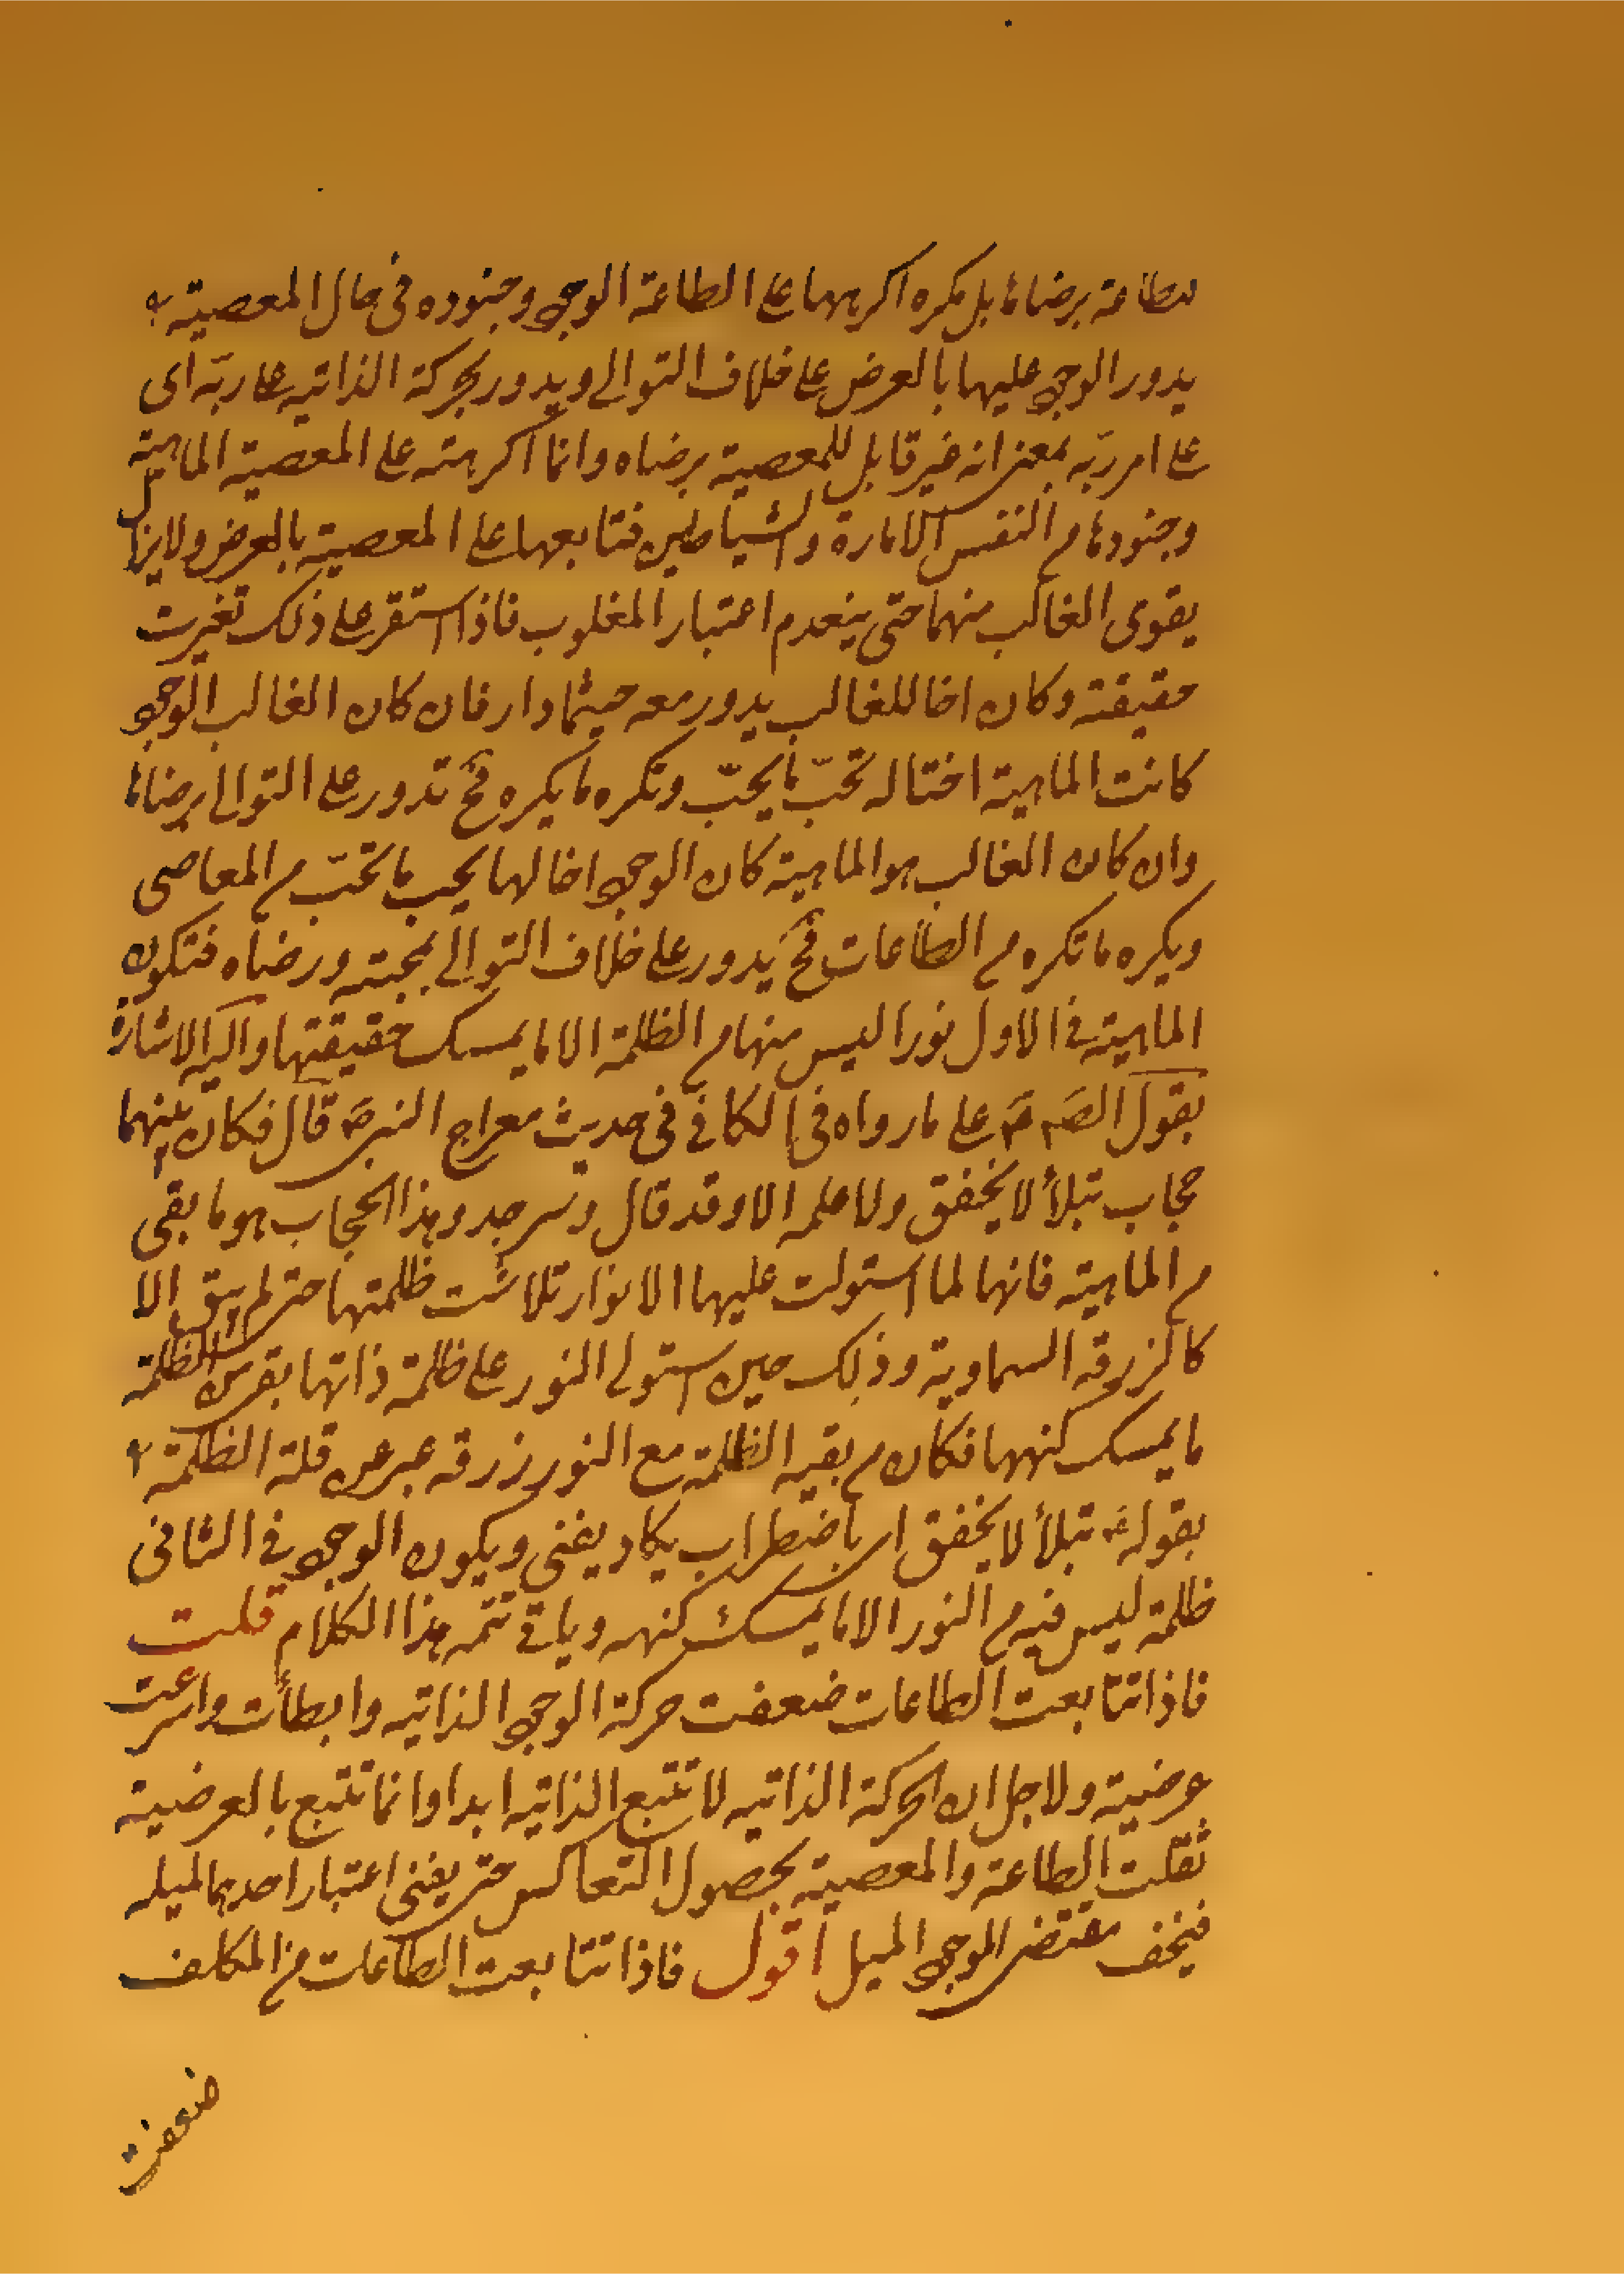 للطاعة برضاها بل بكره اكرهها على الطاعة الوجود وجنوده فى حال المعصية
يدور الوجود عليها بالعرض على خلاف التوالى ويدور بحركته الذاتية على ربّه اى
على امر ربّه بمعنى انه غير قابل للمعصية برضاه وانما اكرهته على المعصية الماهية
وجنودها من النفس الامارة والشياطين فتابعها على المعصية بالعرض ولا يزال
يقوى الغالب منهما حتى ينعدم اعتبار المغلوب فاذا استقر على ذلك تغيرت
حقيقته وكان اخا للغالب يدور معه حيثما دار فان كان الغالب الوجود
كانت الماهية اختا له تحبّ ما يحبّ وتكره ما يكره فح تدور على التوالى برضاها
وان كان الغالب هو الماهية كان الوجود اخا لها يحب ما تحبّ من المعاصى
ويكره ما تكره من الطاعات فح يدور على خلاف التوالى بمحبته ورضاه فتكون
الماهية فى الاول نورا ليس منها من الظلمة الا ما يمسك حقيقتها واليه الاشارة
بقول الصم ع على ما رواه فى الكافى فى حديث معراج النبى ص قال فكان بينهما
حجاب يتلألأ يخفق ولا اعلمه الا وقد قال زبرجد وهذا الحجاب هو ما بقى
من الماهية فانها لما استولت عليها الانوار تلاشت ظلمتها حتى لم يبق الا
كالزرقه السماوية وذلك حين استولى النور على ظلمة ذاتها بقى من الظلمة
ما يمسك كنهها فكان من بقيه الظلمة مع النور زرقه عبر عن قلة الظلمة
بقوله ع يتلألأ يخفق اى باضطراب يكاد يفنى ويكون الوجود فى الثانى
ظلمة ليس فيه من النور الا ما يمسك كنهه وياتى تتمه هذا الكلام قلت
فاذا تتابعت الطاعات ضعفت حركة الوجود الذاتيه وابطأت واسرعت
عرضيته ولاجل ان الحركة الذاتيه لا تتبع الذاتيه ابدا وانما تتبع بالعرضية
ثقلت الطاعة والمعصية بحصول التعاكس حتى يفنى اعتبار احدهما لميله
فيخف مقتضى الموجود الميل اقول فاذا تتابعت الطاعات من المكلف
ضعفت